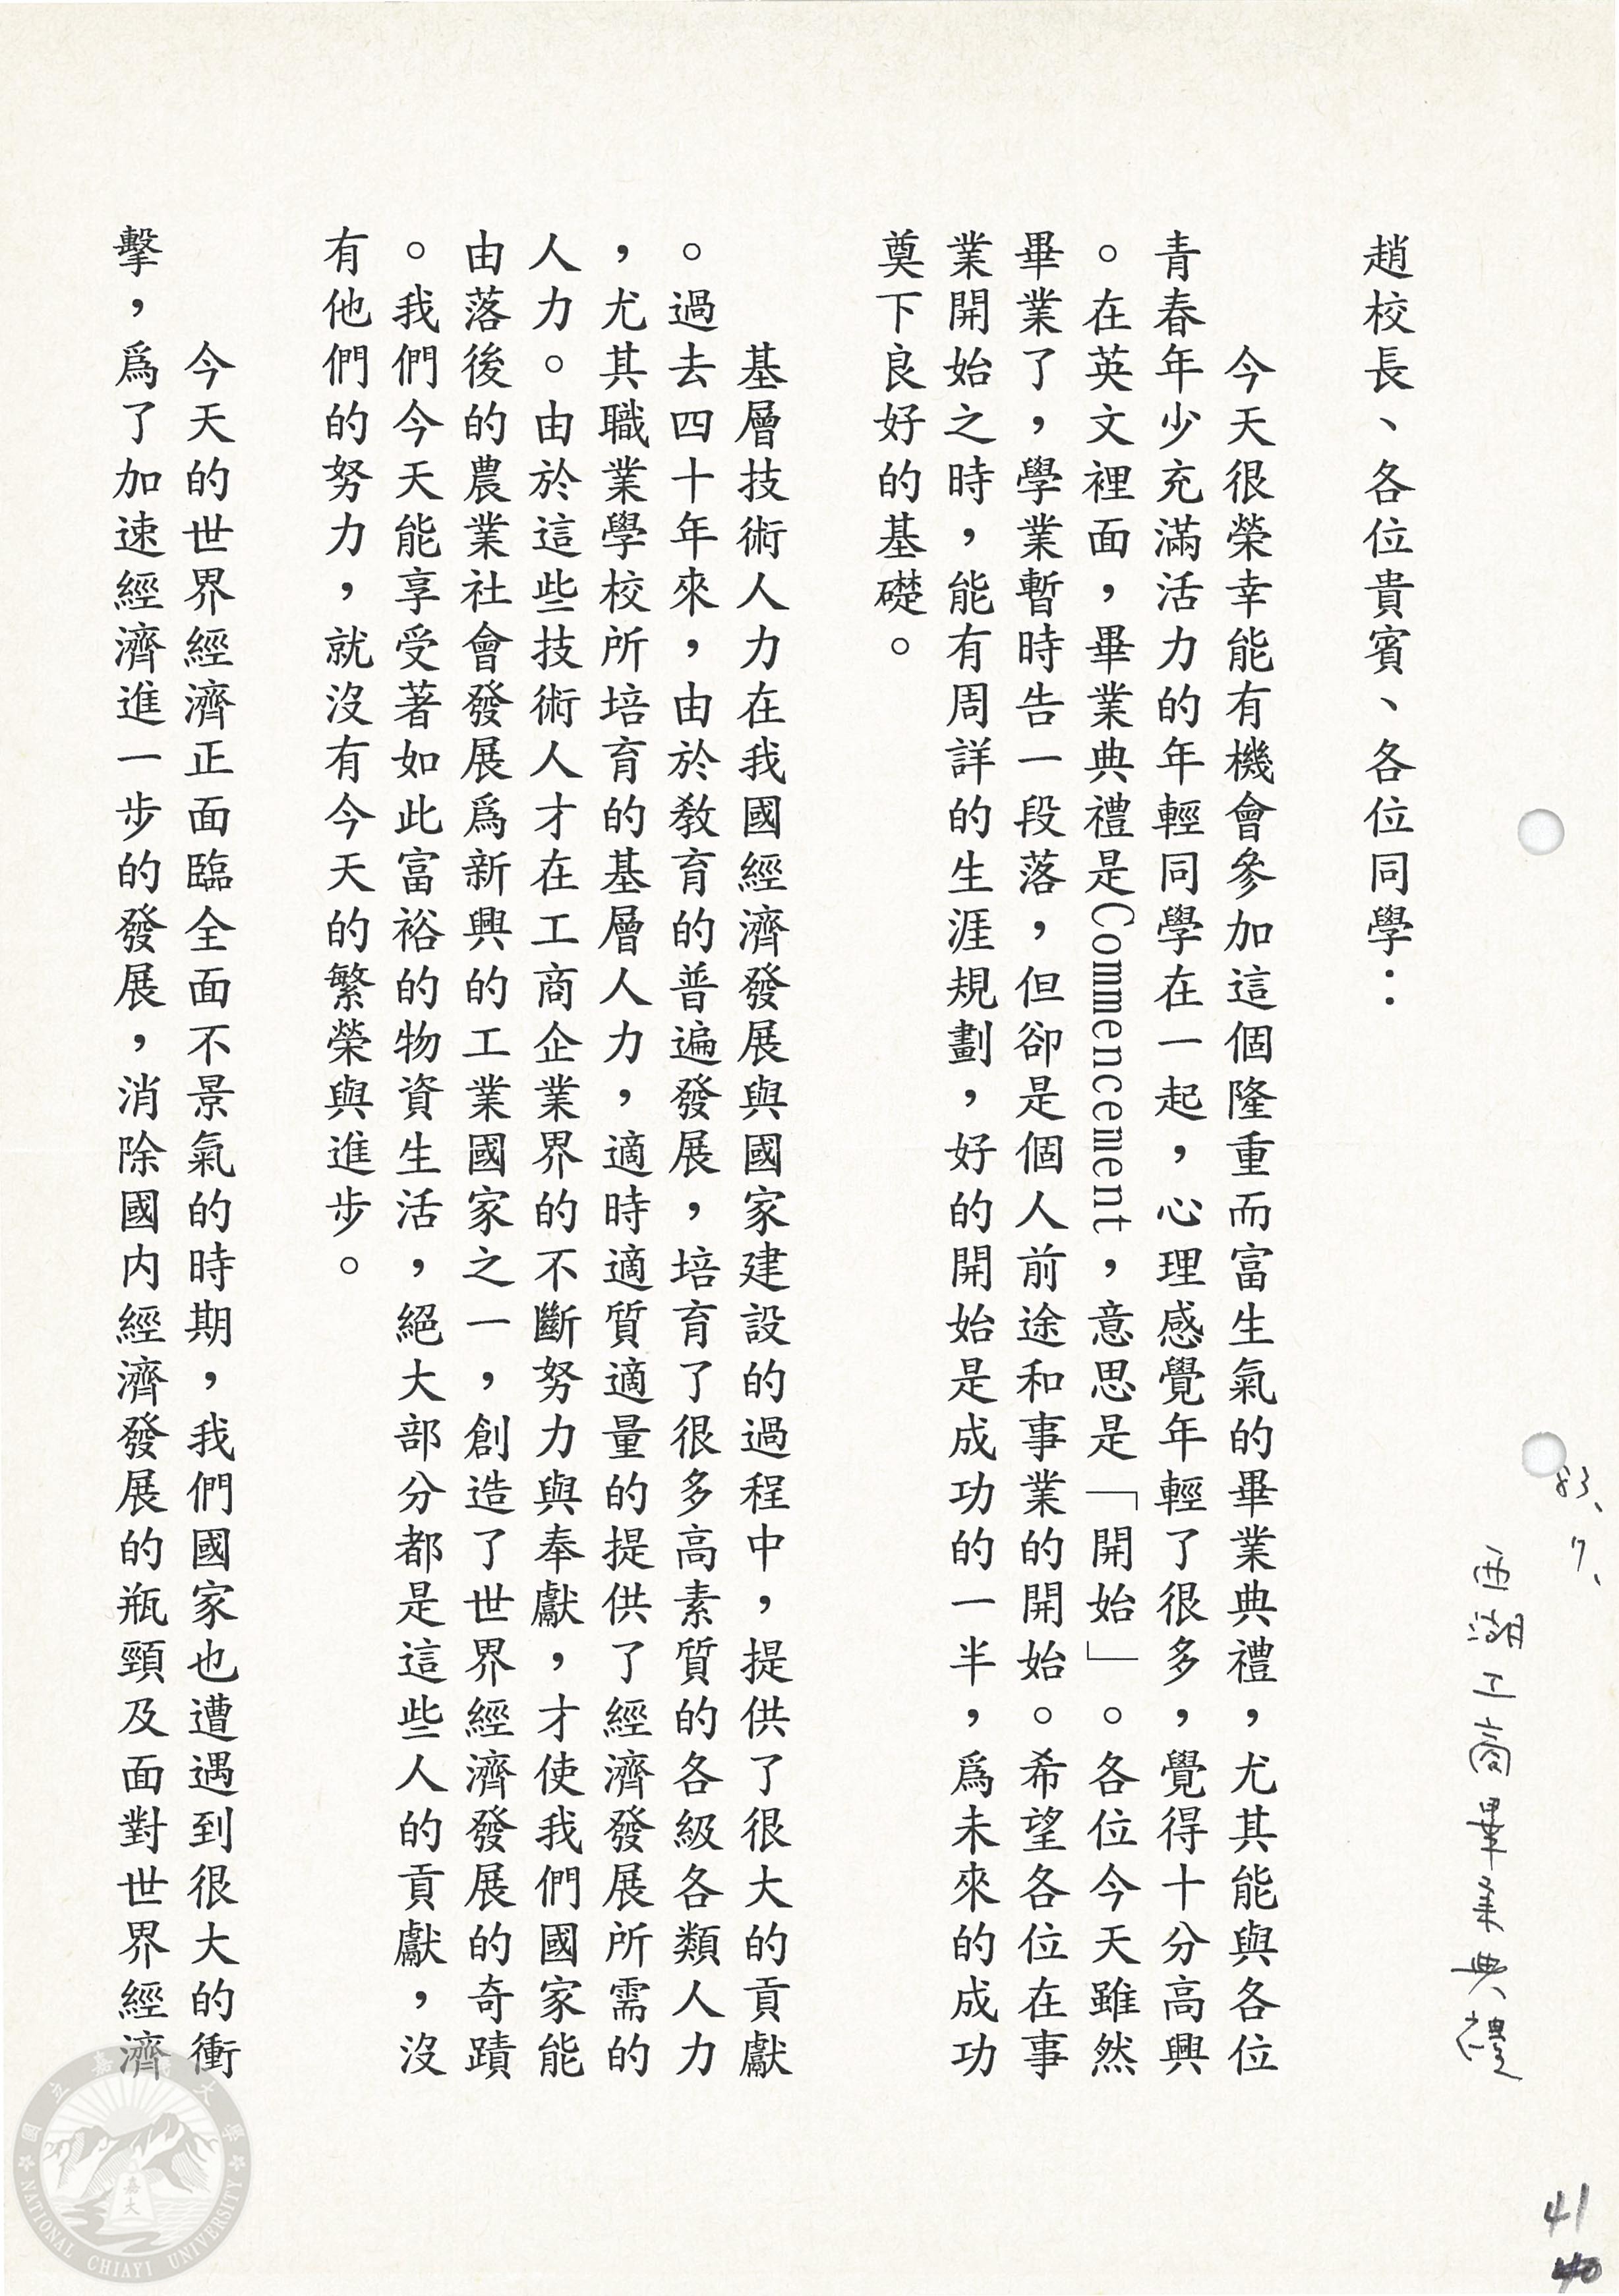 83、7、
西湖工商畢業典禮
趙校長、各位貴賓、各位同學：
今天很榮幸能有機會參加這個隆重而富生氣的畢業典禮，尤其能與各位
青春年少充滿活力的年輕同學在一起，心理感覺年輕了很多，覺得十分高興
。在英文裡面，畢業典禮是Commencement，意思是「開始」。各位今天雖然
畢業了，學業暫時告一段落，但卻是個人前途和事業的開始。希望各位在事
業開始之時，能有周詳的生涯規劃，好的開始是成功的一半，爲未來的成功
奠下良好的基礎。
基層技術人力在我國經濟發展與國家建設的過程中，提供了很大的貢獻
。過去四十年來，由於教育的普遍發展，培育了很多高素質的各級各類人力
，尤其職業學校所培育的基層人力，適時適質適量的提供了經濟發展所需的
人力。由於這些技術人才在工商企業界的不斷努力與奉獻，才使我們國家能
由落後的農業社會發展爲新興的工業國家之一，創造了世界經濟發展的奇蹟
。我們今天能享受著如此富裕的物資生活，絕大部分都是這些人的貢獻，沒
有他們的努力，就沒有今天的繁榮與進步。
今天的世界經濟正面臨全面不景氣的時期，我們國家也遭遇到很大的衝
擊，爲了加速經濟進一步的發展，消除國内經濟發展的瓶頸及面對世界經濟
41
40
國立嘉義大學
嘉大
NATIONAL CHIAYI UNIVERSITY